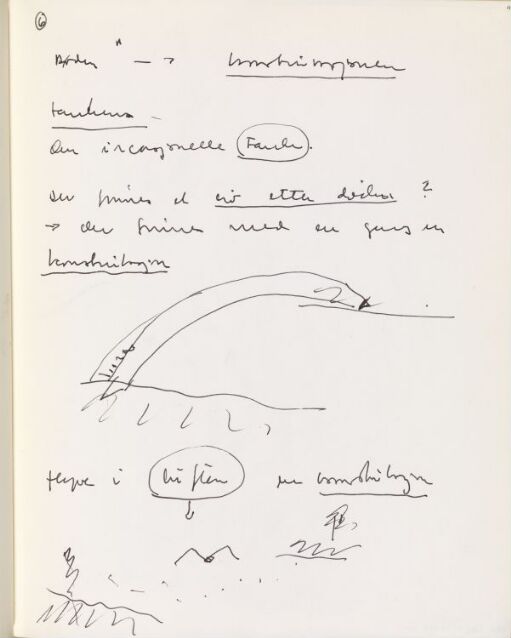 6
→ konstruksjonen
tankens
den irrasjonelle tanke.
det finnes et liv etter døden ?
→ det finnes med en gang en
konstruksjon
i luften en konstruksjon